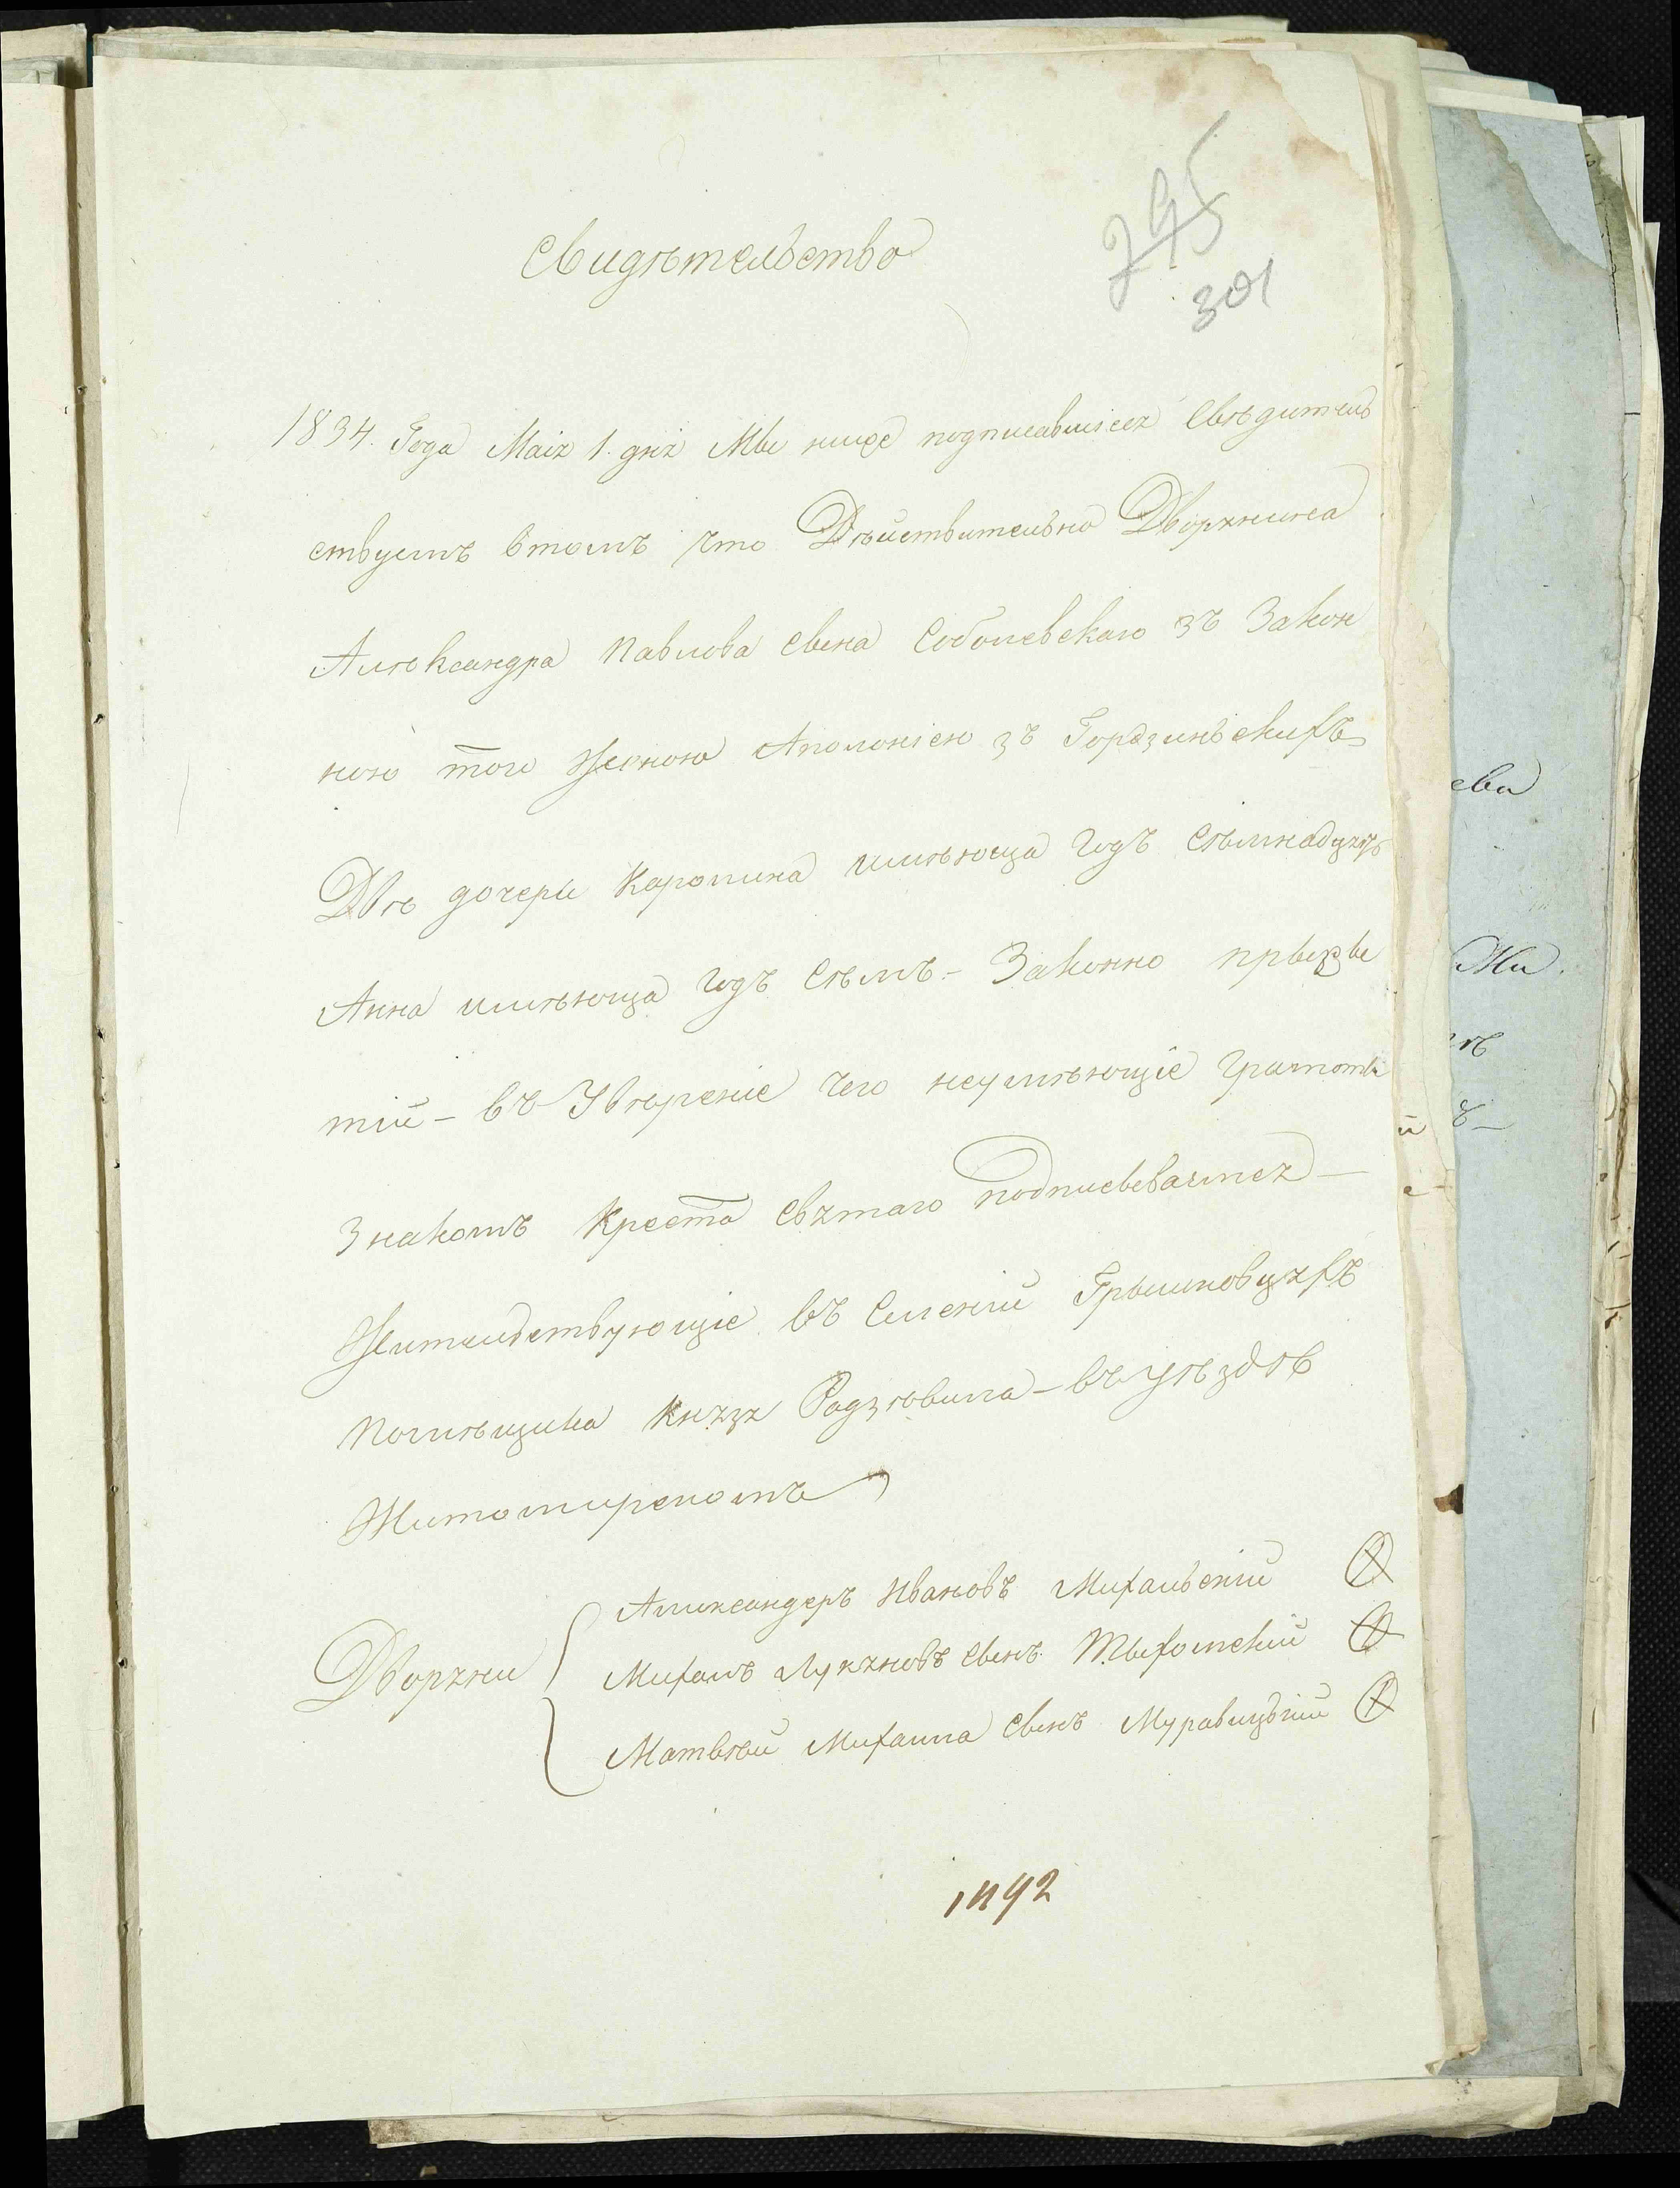 Свидѣтельство
295
301
1834. Года Маія 1. дня Мы ниже подписавшіеся Свѣдитель
ствуемъ втомъ что Дѣйствительно Дворянина
Алѣксандра Павлова сына Соболевскаго зъ Закон
ною того Женною Аполоніею зъ Гордзинскихъ
Двѣ дочеры Каролина имѣюща годъ Сѣмнадцять
Анна имѣюща годъ Сѣмъ - Законно прыжы
тіи - въ Увѣреніе чего неумѣющіе грамоты
Знакомъ Креста святаго подписываемся -
Жительствующіе въ Сіленіи Грышковцяхъ
Помѣщика Князя Радзѣвила - въ Уѣздѣ
Житомирскомъ
Дворяни
Александеръ Ивановъ Михальскіи
Михалъ Лукяновъ сынъ Тыхомскій
Матвѣй Михаила сынъ Муравицкій
1492
ева
Жи